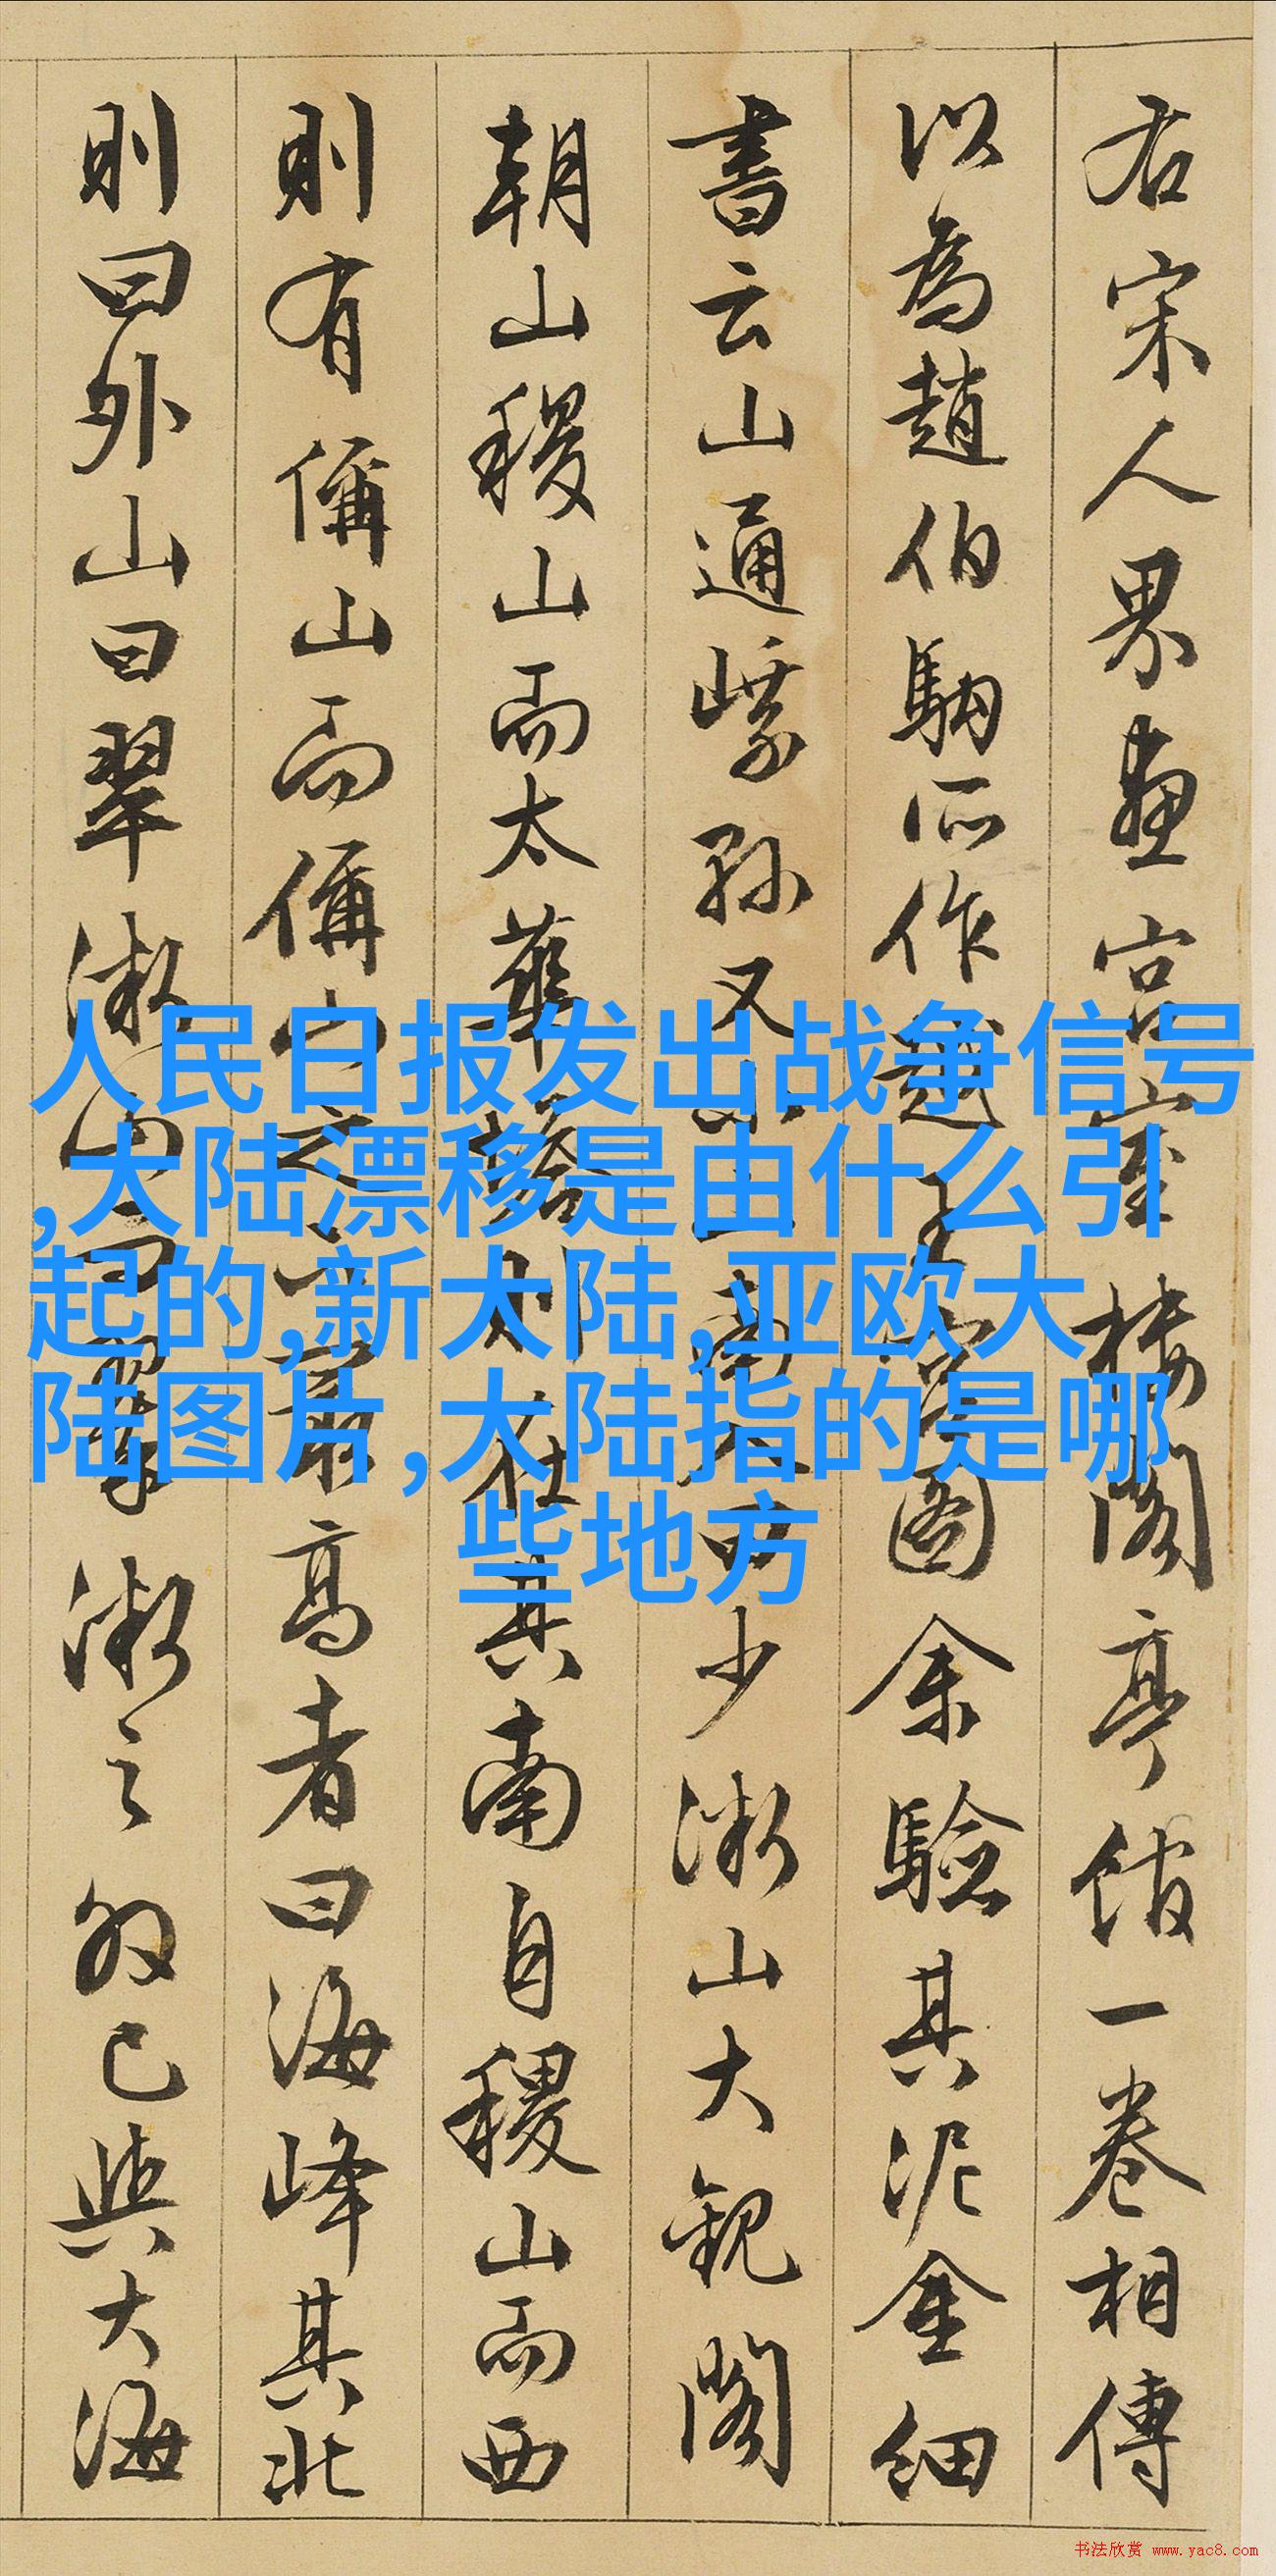 右宋人界畫宮室樓閣亭館一卷相傳
以為趙伯駒所作越王宮圖余驗其泥金細
書云山通
少微山大觀閣
朝山稷山而太華
則在其南自稷山而西
則有偁山而偁山之
最高者曰海峰其北
則曰外山曰翠微山曰翠微之
已與大海
人民日报发出战争信号
,大陆漂移是由什么引
起的,新大陆,亚欧大
陆图片,大陆指的是哪
些地方
书法欣赏 www.yac8.com